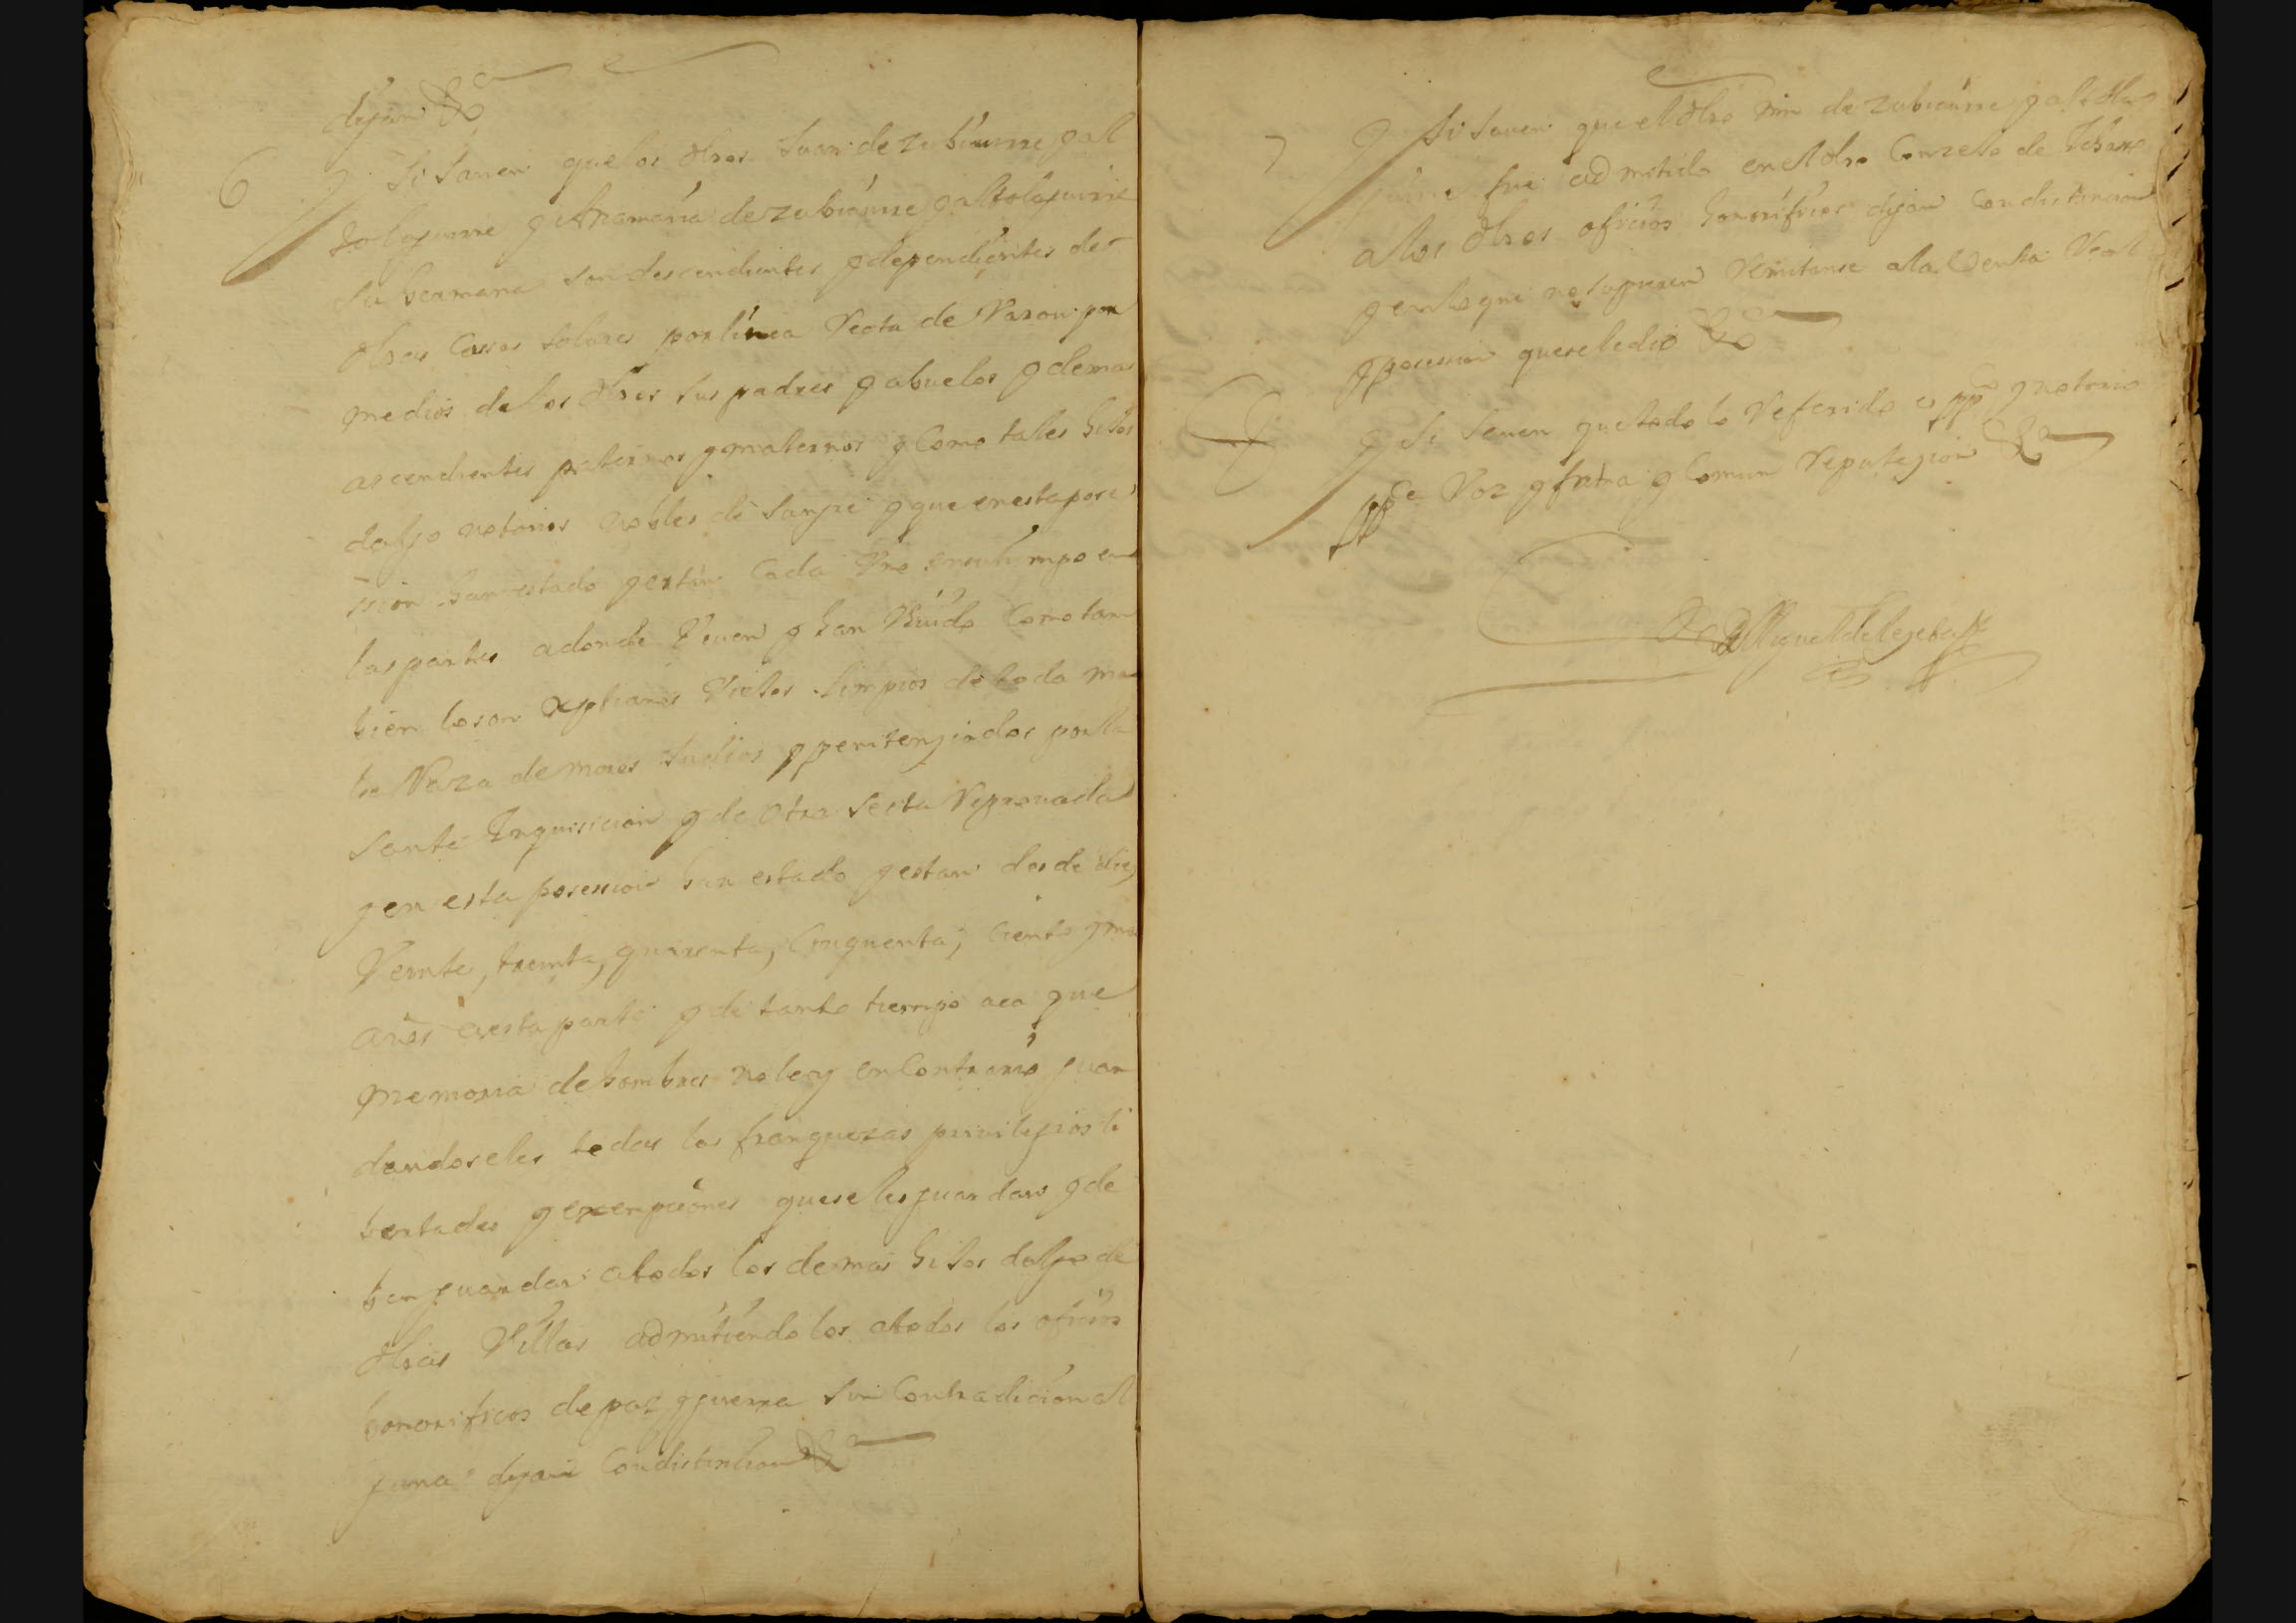 digan &a
6 Y Si sauen que los dhos Juan de zubiaurre gal
tolaguirre y Anamaria de zubiaurre galtolaguirre
su hermana son descendientes y dependientes de
dhas Casas solares por linea Recta de Varon por
medios de los dhos sus padres y abuelos y demas
ascendientes paternos y maternos y Como tales hijos
dalgo notorios nobles de sangre y que en esta pose
ssion han estado y estan Cada Vno en su tiempo en
las partes adonde Viuen y han Viuido Como tam
bien los on Xptianos Viejos limpios de toda ma
la Raza de moros Judios y penitenziados por la
Santa Inquisicion y de otra secta Reprouada
y en esta posession han estado y estan desde diez
Veinte, treinta, quarenta, Cinquenta, Ciento y mas
años aesta parte y de tanto tiempo aca que
memoria de hombres no lo ay en Contrario guar
dandoseles todas las franquezas priuilegios li
bertades y exempciones que se les guardan y de
ben guardar atodos los demas hijos dalgo de
dhas Villas admitiendolos atodos los oficios
honorificos de paz y guerra sin Contradicion al
guna digan Con distincion &a
7 Y Si sauen que el dho Juan de zubiaurre galtola
guirre fue admitido en el dho Conzejo de
alos dhos oficios honorificos digan Con distincion
y en lo que no supieren Remitanse ala Venta Real
y posession que se le dio &a
Y Si sauen que todo lo Referido es ppco y notorio
ppca Voz y fama y Comun Reputazion &a
Miguel de